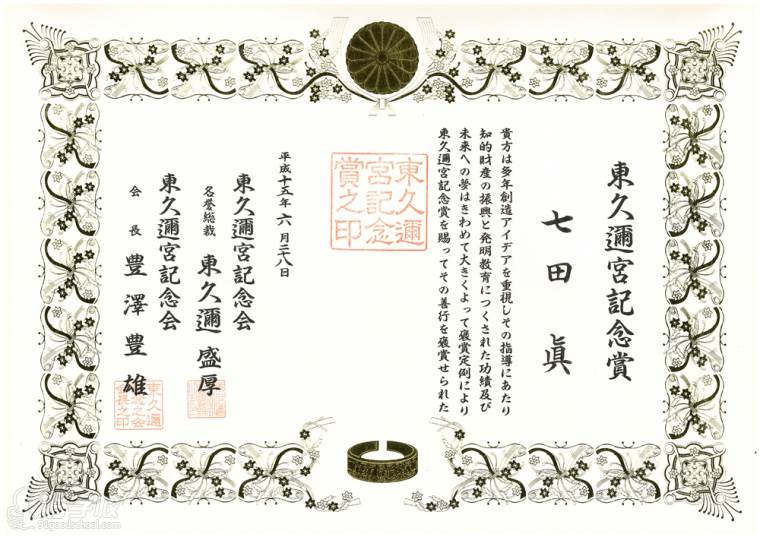 東久邇宮記念賞
七田 眞
貴方は多年創造アイデアを重視しその指導にあたり
知的財産の振興と発明教育につくされた功績及び
未来への夢はきわめて大きくよって褒賞定例により
東久邇宮記念賞を賜ってその善行を褒賞せられた
東久邇宮記念賞之印
平成十五年 六月二八日
東久邇宮記念会
名誉総裁 東久邇 盛厚
東久邇宮記念会
会長 豊澤 豊雄
51goodschool.com